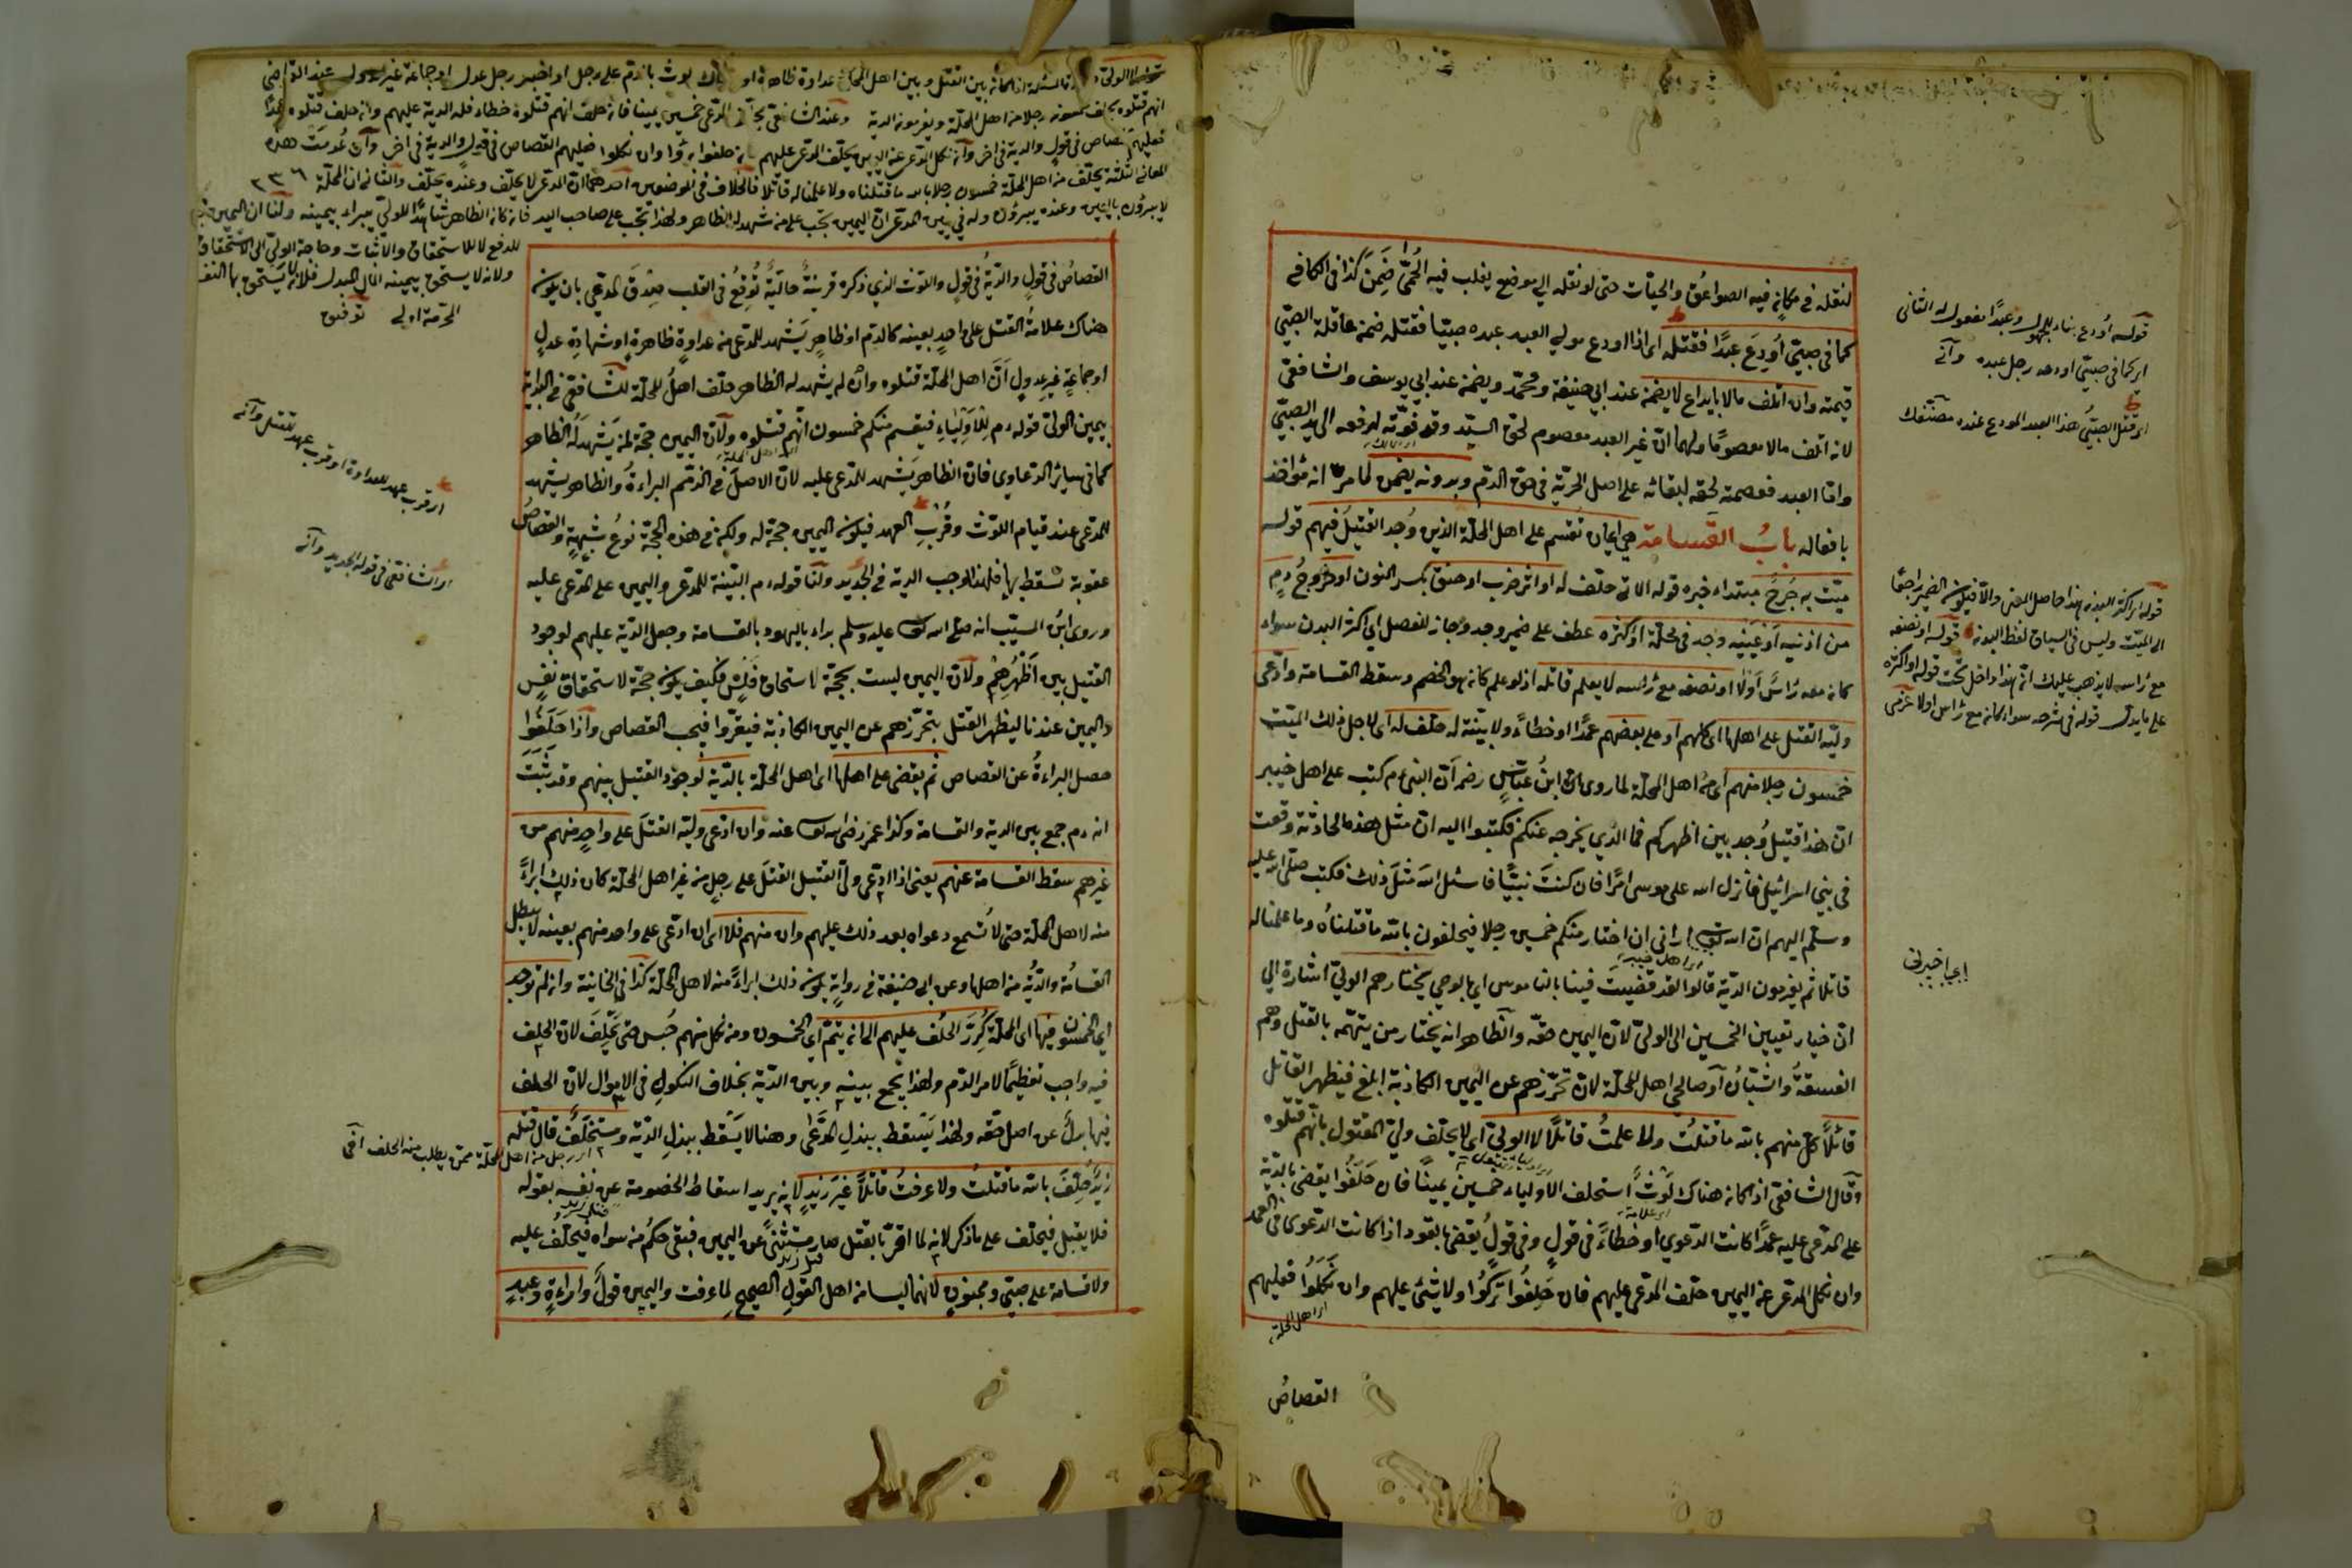 لنقله في مكانٍ فيه الصواعقُ والحيّات حتى لو نقله الي موضع يغلب فيه الحُمّى ضَمِنَ كذا في الكافي
كما في صبيّ اُودِعَ عبدًا فقتله اى اذا اودع مولي العبد عبده صبيّا فقتله ضمن عاقلة الصبيّ
قيمته وان اتلف مالا بايداع لا يضمن عند ابي حنيفة ومحمّد ويضمن عند ابي يوسف والشافعيّ
لانه اتلف مالا معصومًا ولهما انّ غير العبد معصوم لحق السيّد وقد فوّته لدفعه الى يد الصبيّ
وامّا العبد فعصمته لحقه لبقائه على اصل الحرّية في حقّ الدّم وبدونه يضمن لما مرّ انه مؤاخذ
بافعاله بابُ القَسامة هي ايمان تقسم على اهل المحلّة الذين وُجد القتيلُ فيهم قوله
ميّت به جُرحٌ مبتداء خبره قوله الاتي حلّف له او اثر ضرب او خنق بكسر النون او خروجُ دمٍ
من اذنيه او عَينيه وجد في محلّة او اكثره عطف على ضمير وجد وجاز للفصل اي اكثر البدن سواء
كان معه رأسٌ اَوْلا او نصفه مع رأسه لا يعلم قاتله اذ لو علم كان هو الخصم وسقط القسامة وادّعى
وليّه القتل على اهلها اى كلهم او على بعضهم عمدًا او خطاءً ولا بيّنة له حلّف له اى لاجل ذلك الميّت
خمسون رجلا منهم اى من اهل المحلّة لما روى انّ ابنُ عبّاسٍ رضـ انّ النبيّ م كتب على اهل خيبر
انّ هذا قتيل وُجد بين اظهركم فما الّذي يخرجه عنكم فكتبوا اليه انّ مثل هذه الحادثة وقعت
في بني اسرائيل فانزل الله على موسى امرًا فان كنتَ نبيًّا فاسئل اللهَ مثلَ ذلك فكتب صلّى الله عليه
وسلّم اليهم ان الله تعـ اراني ان اختار منكم خمسين رجلا فيحلفون بالله ما قتلناهُ وما علمنا له
قاتلا ثم يغرمون الدّية قالوا لقد قضيتَ فينا بالناموس اي بالوحي يختارهم الوليّ اشارة الي
انّ خيار تعيين الخمسين الى الوليّ لانّ اليمين حقّه والظاهر انه يختار من يتّهمه بالقتل وهم
الفسقةُ والشبّانُ او صالحى اهل المحلّة لانّ تحرّزهم عن اليمين الكاذبة ابلغ فيظهر القاتل
قائلًا كلّ منهم بالله ما قتلتُ ولا علمتُ قاتلًا لا الوليّ اى لا يحلّف وليّ المقتول بانّهم قتلوه
وقال الشافعي اذا كان هناك لَوْثٌ استحلف الاولياء خمسين يمينًا فان حَلَفُوا يقضى بالدّية
على المدّعى عليه عمدًا كانت الدعوي او خطاءً في قولٍ وفي قولٍ يقضى بالقود اذا كانت الدّعوى فى العمد
وان نكل المدّعى عن اليمين حلّف المدّعى عليهم فان حَلِفُوا تُرِكُوا ولا شئ عليهم وان نَكَلُوا فعليهم
اى اهل المحلة
القصاصُ
قوله اُودع بناء للمجهول وعبدًا مفعوله الثانى
اى كما في صبيّ اودعه رجل عبده وآنى
اى قتل الصبيّ هذا العبد المودع عنده مصنفك
قوله اى اكثر البدن هذا حاصل المعنى والّا فيكون الضمير راجعًا
الى الميّت وليس في السياق لفظ البدن قوله او نصفه
مع رأسه لا يذهب عليك انّ هذا داخل تحت قوله او اكثره
على ما يدلّ قوله في شرحه سواء كان مع رأس اولا عزمى
اى اخبرنى
المعانى الثلثة يحلّف من اهل المحلّة خمسون رجلا بالله ما قتلناه ولا علمنا له قاتلا فالخلاف في الموضعين احدهما انّ المدّعى لا يحلّف وعنده يحلّف والثانى انّ اهل المحلّة ٢٣٦
للدفع لا للاستحقاق والاثبات وحاجة الوليّ الى الاستحقاق
ولانه لا يستحق بيمينه المال المبدل فلان لا يستحق بها النفس
المحرمة اولى توفيق
القصاصُ في قولٍ والديةُ في قولٍ واللوث الذي ذكره قرينةٌ حاليةٌ تُوقِعُ في القلب صِدْقَ المدّعي بان يكون
هناك علامةُ القتل على واحدٍ بعينه كالدم او ظاهرٍ يَشهد للمدّعى من عداوةٍ ظاهرةٍ او شهادةِ عدلٍ
او جماعةٍ غيرِ عدولٍ انّ اهل المحلّة قتلوه وان لم يشهد له الظاهر حلّف اهلُ المحلّة للشافعيّ في البداية
بيمين الوليّ قوله ءم للاولياءِ فيقسم منكم خمسون انّهم قتلوه ولانّ اليمين حجّة لمن يَشهد له الظاهر
كما في سائر الدعاوي فان الظاهر يَشهد للمدّعى عليه لانّ الاصل في الذّمم البراءةُ والظاهر يشهد
للمدّعى عند قيام اللوث وقُرْبِ العهد فيكون اليمين حجة له ولكن في هذه الحجّة نوعُ شبهةٍ والقصاصُ
عقوبة تسقط بها فلهذا وجب الدية في الجديد ولنا قوله ءم البيّنة للمدّعى واليمين على المدّعى عليه
وروى ابنُ المسيّب انه صلّى الله تعـ عليه وسلم بداء باليهود بالقسامة وجعل الدّية عليهم لوجود
القتيل بين اَظْهُرِهُمْ ولانّ اليمين ليست بحجّة لاستحقاق فَلْسٍ فكيف يكون حجّة لاستحقاق نفسٍ
واليمين عندنا ليظهر القتل بتحرّزهم عن اليمين الكاذبة فيقرّوا فيجب القصاص واذا حَلَفُوا
حصل البراءةُ عن القصاص ثم يقضى على اهلها اى اهل المحلّة بالدّية لوجود القتيل بينهم وقد ثَبَتَ
انه ءم جمع بين الدية والقسامة وكذا عمر رضى الله تعـ عنه وان ادّعى وليّه القتلَ على واحدٍ منهم من
غيرهم سقط القسامة عنهم يعنى اذا ادّعى وليّ القتيل القتلَ على رجلٍ من غير اهل المحلّة كان ذلك ابراءً
منه لاهل المحلّة حتى لا تُسمع دعواه بعد ذلك عليهم وان منهم فلا اى ان ادّعى على واحد منهم بعينه لا يبطل
القسامُة والديّة من اهلها وعن ابى حنيفة في روايةٍ يكون ذلك ابراءً منه لاهل المحلّة كذا في الخانية وان لم توجد
اي الخمسون فيها اى المحلّة كُرِّرَ الحَلْف عليهم الى ان يتمّ اي الخمسون ومن نكل منهم حُبِس حتى يَحْلِفَ لانّ الحلف
فيه واجب تعظيمًا لامر الدّم ولهذا يجمع بينه وبين الدّية بخلاف النكولِ في الاموال لانّ الحلف
فيها بدلٌ عن اصل حقّه ولهذا يَسْقط ببذلِ المدَّعَى وهنا لا يَسْقط ببذلِ الدّية ومستحلَفٌ قال قتله
زيدٌ حُلِّفَ بالله ما قتلتُ ولا عرفتُ قاتلًا غيرَ زيدٍ لانه يريد اسقاط الخصومة عن نفسه بقوله
فلا يقبل فيحلف على ما ذكر لانه لما اقرّ بالقتل صار مستثنًى عن اليمين فبقى حكمُ من سواه فيحلّف عليه
ولا قسامة على صبيّ ومجنونٍ لانهما ليسا من اهل القول الصحيح لما عرفت واليمين قولٌ وامراةٍ وعبدٍ
اى قرب عهد للعداوة او قرب عهد للقتل وآنى
اى الشافعي في قوله الجديد وآنى
اى رجل من اهل المحلّة ممّن يطلب منه الحلف آخى